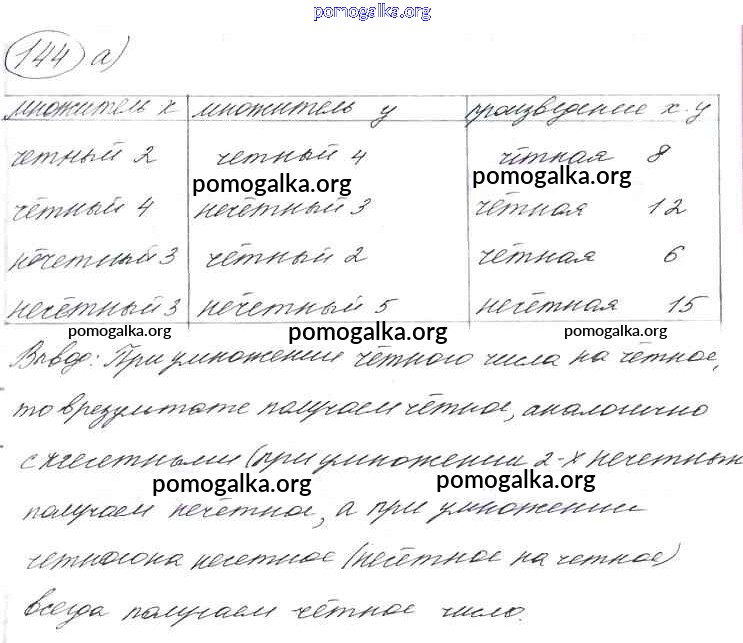 pomogalka.org
144 а)
множитель х множитель у произведение х·у
четный 2 четный 4 чётная 8
pomogalka.org pomogalka.org
чётный 4 нечётный 3 чётная 12
нечетный 3 чётный 2 чётная 6
нечётный 3 нечетный 5 нечётная 15
pomogalka.org pomogalka.org pomogalka.org
Вывод: При умножении чётного числа на чётное,
то в результате получаем чётное, аналогично
с нечетными (при умножении 2-х нечетных
pomogalka.org pomogalka.org
получаем нечётное, а при умножении
четного на нечетное (нечётное на четное)
всегда получаем чётное число.